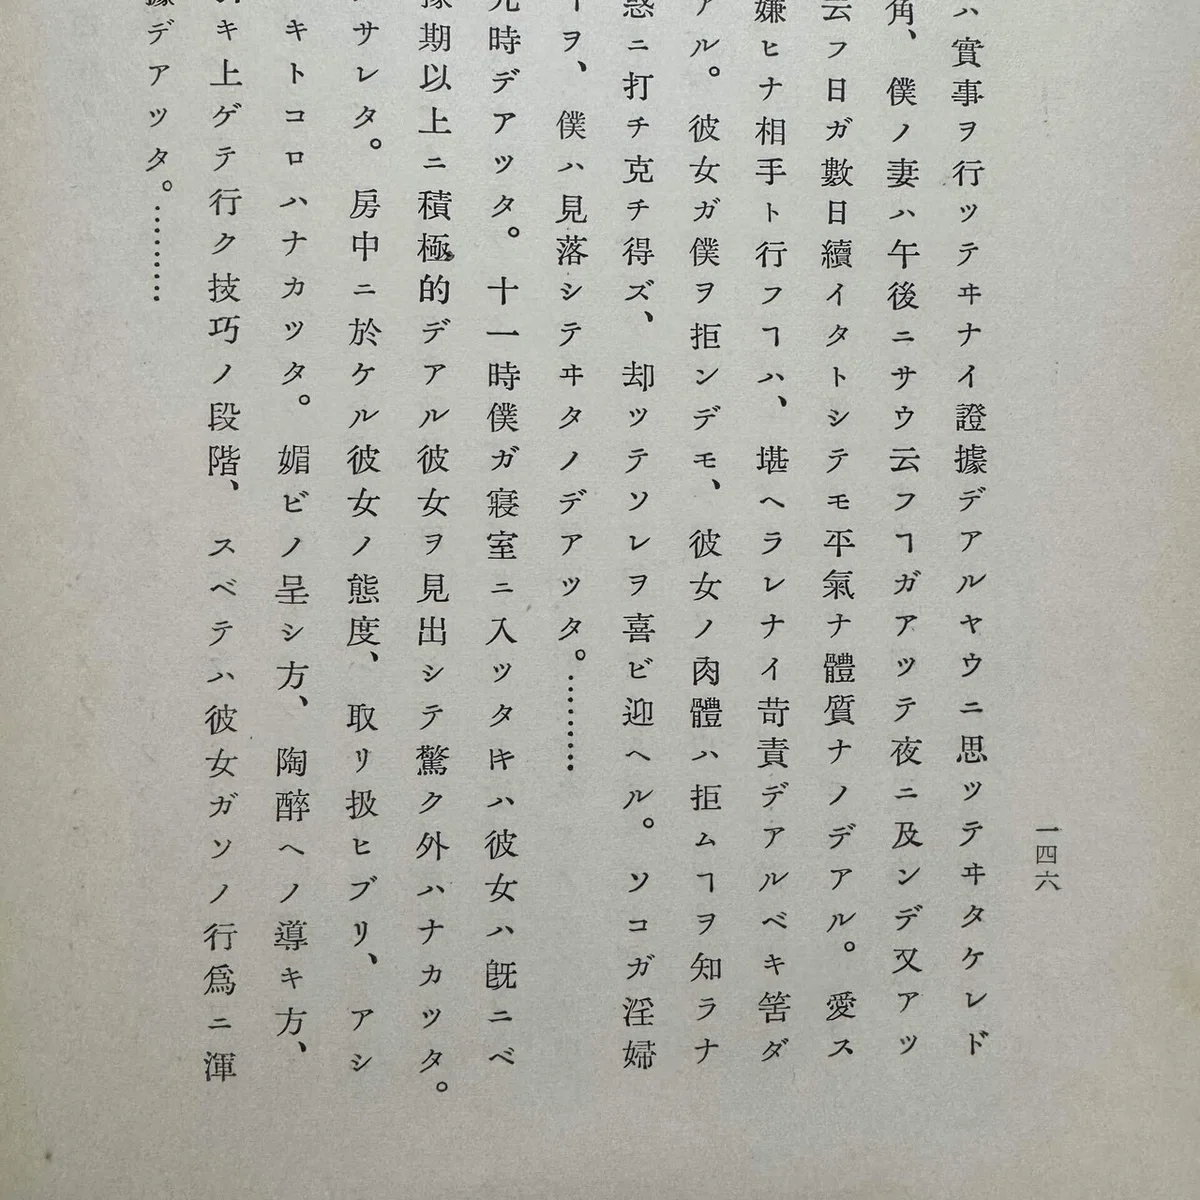 ハ實事ヲ行ッテヰナイ證據デアルヤウニ思ッテヰタケレド
角、僕ノ妻ハ午後ニサウ云フヿガアッテ夜ニ及ンデ又アッ
云フ日ガ數日續イタトシテモ平氣ナ體質ナノデアル。愛ス
嫌ヒナ相手ト行フヿハ、堪ヘラレナイ苛責デアルベキ筈ダ
アル。彼女ガ僕ヲ拒ンデモ、彼女ノ肉體ハ拒ムヿヲ知ラナ
惑ニ打チ克チ得ズ、却ッテソレヲ喜ビ迎ヘル。ソコガ淫婦
ヲ、僕ハ見落シテヰタノデアッタ。………
時デアッタ。十一時僕ガ寢室ニ入ッタ𪜈ハ彼女ハ既ニベ
豫期以上ニ積極的デアル彼女ヲ見出シテ驚ク外ハナカッタ。
サレタ。房中ニ於ケル彼女ノ態度、取リ扱ヒブリ、アシ
キトコロハナカッタ。媚ビノ呈シ方、陶醉ヘノ導キ方、
キ上ゲテ行ク技巧ノ段階、スベテハ彼女ガソノ行爲ニ渾
據デアッタ。………
一四六